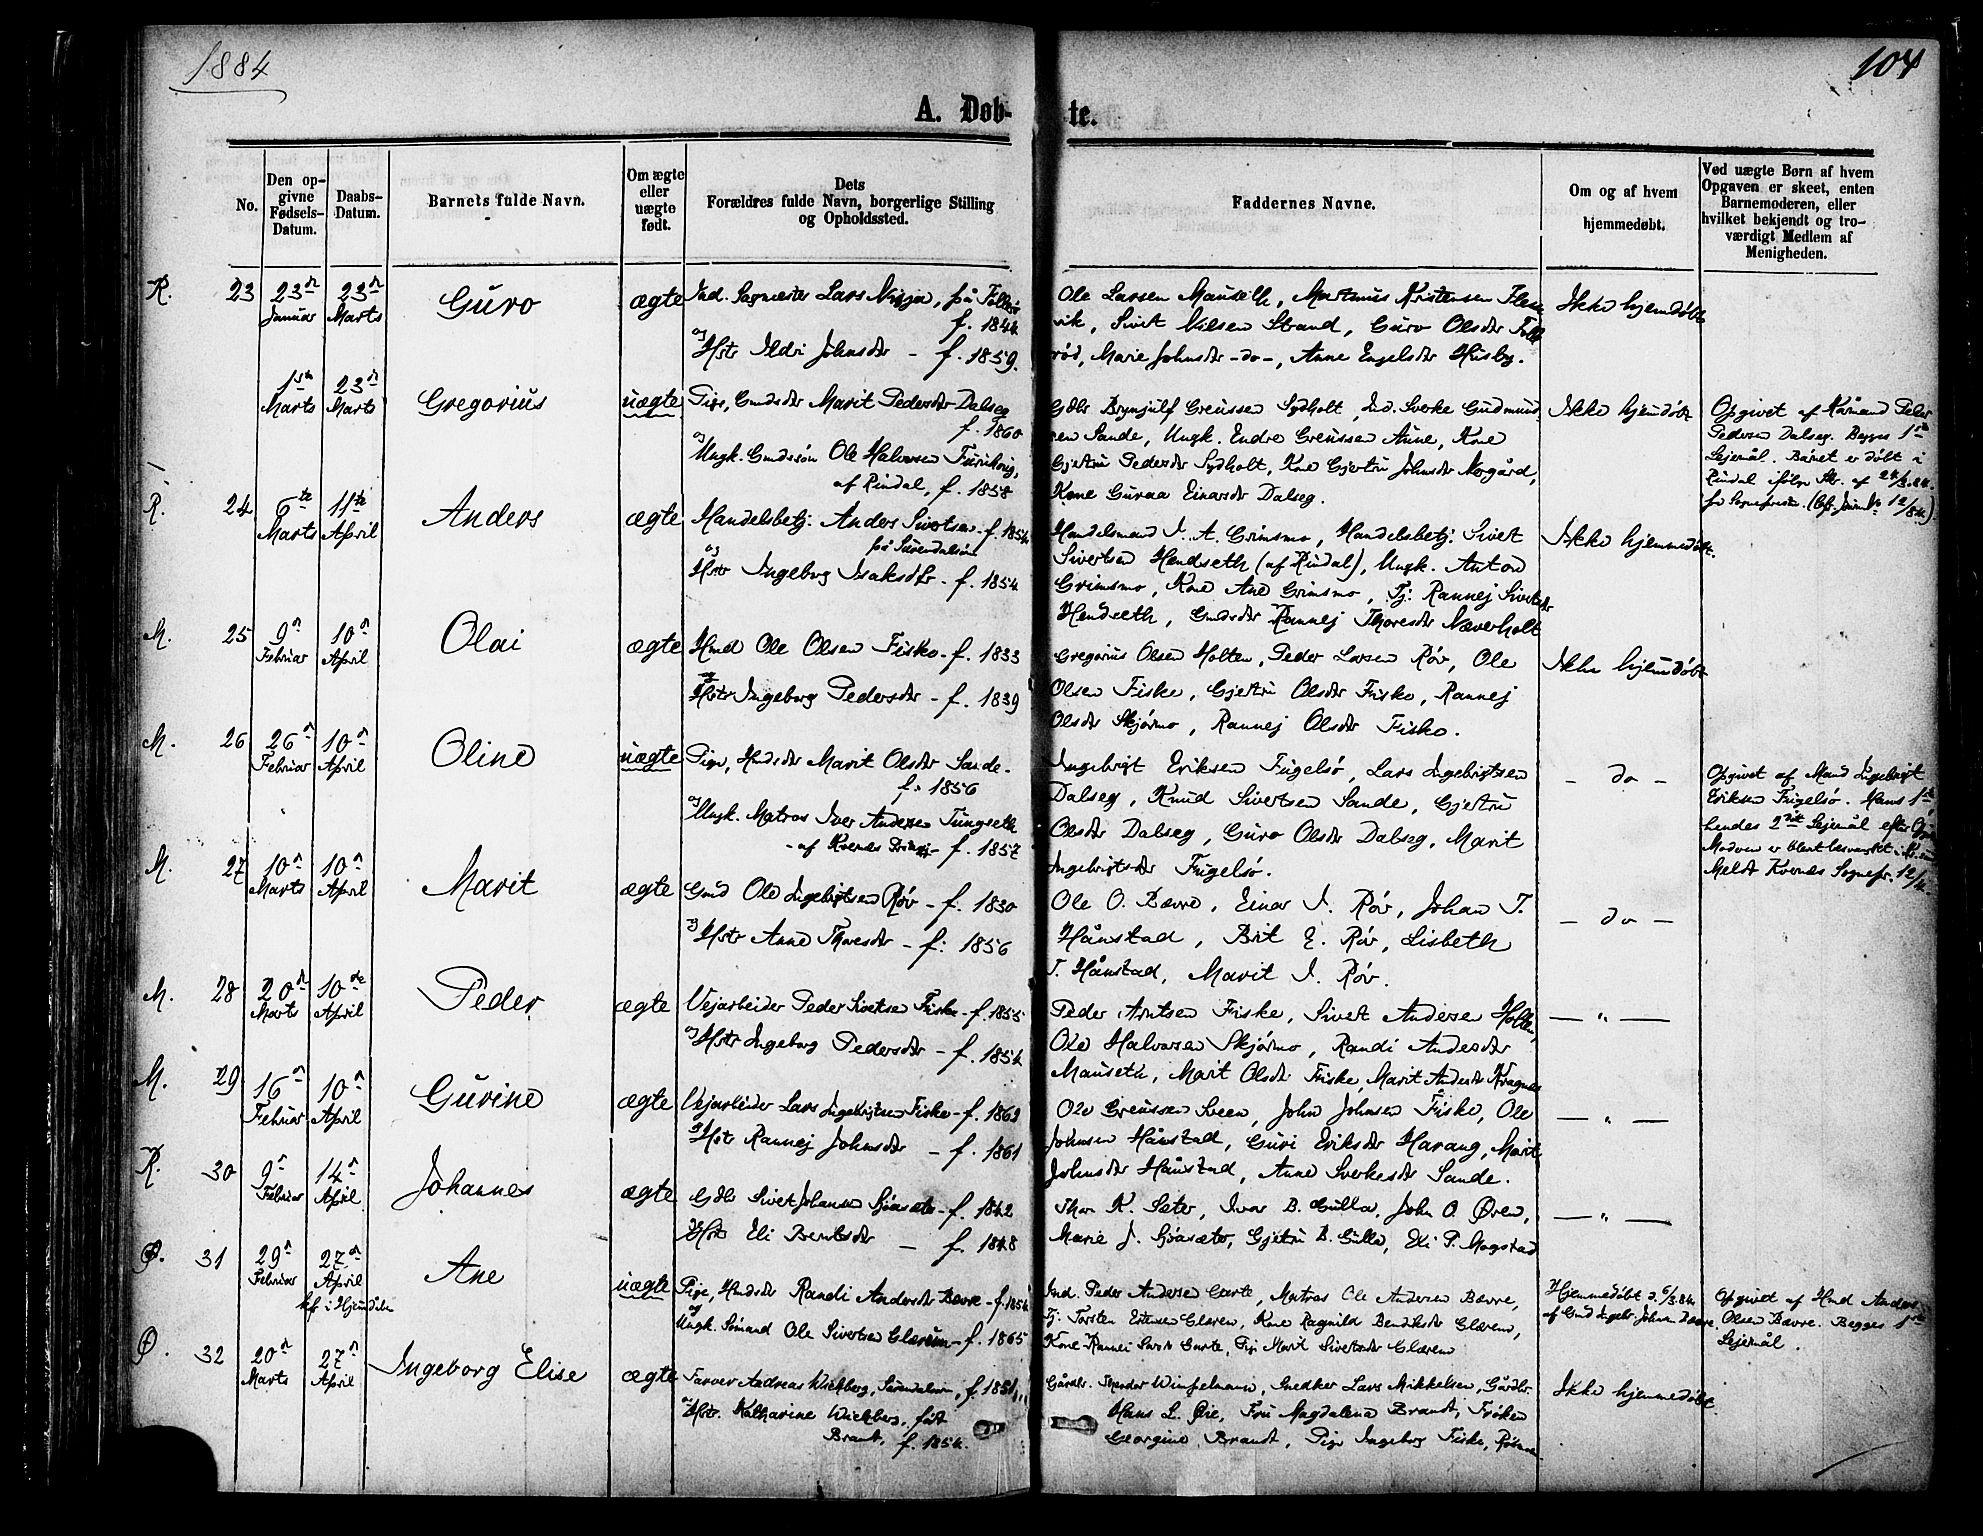 1884
104
A. Døb-
te.
No.
Den op-
givne
Fødsels-
Datum.
Daabs-
Datum.
Barnets fulde Navn.
Om ægte
eller
uægte
født.
Dets
Forældres fulde Navn, borgerlige Stilling
og Opholdssted.
Faddernes Navne.
Om og af hvem
hjemmedøbt.
Ved uægte Børn af hvem
Opgaven er skeet, enten
Barnemoderen, eller
hvilket bekjendt og tro-
værdigt Medlem af
Menigheden.
R. 23 23 Januar 23 Marts Guro ægte
Ind. Lars på
f. 1844
Hstr Ildri Johnsdtr - f. 1859.
Ole Larsen Mauseth, Martinus Kristensen
vik, Sivert Nilsen Strand, Guro Olsdtr
rød, Marie Johnsdtr -do-, Anne Engelsdtr Husby.
Ikke hjemdøbt
1ste Marts 23 Marts Gregorius uægte
Pige, Gmdsdtr Marit Pedersdtr Dalseg
f. 1860
Ungk. Gmdssøn Ole Halvorsen
af Rindal, f. 1858
Gdbr Brynjulf Greussen Sydholt, Ind. Sverke Gudmund
sen Sande, Ungk. Endre Greussen Aune, Kone
Gjertru Pedersdtr Sydholt, Kne Gjertru Johnsdtr Norgård,
Kone Guraa Einarsdtr Dalseg.
Ikke hjemdøbt
Opgivet af Kårmand Peder
Pedersen Dalseg. Begges 1ste
Lejemål. Barnet er døbt i
Rindal ifølge Skr. af 24/3.84.
R. 24 6te Marts 11te April Anders ægte
Handelsbetj. Anders Sivertsen - f. 1854
på Surendalsøra
Hstr Ingeborg Isaksdtr - f. 1854
Handelsmand J. A. Grimsmo, Handelsbetj. Sivert
Sivertsen Hendseth (af Rindal), Ungk. Anton
Grimsmo, Kne Ane Grimsmo, Tj. Rannej Sivertsdtr
Hendseth, Gmdsdtr Rannej Thoresdtr Næverholt
Ikke hjemmedøbt.
M. 25 9 Februar 10 April Olai ægte
Hmd Ole Olsen Fiske - f. 1833
Hstr Ingeborg Pedersdtr - f. 1839
Gregorius Olsen Holten, Peder Larsen Røv, Ole
Olsen Fiske, Gjertru Olsdtr Fiske, Rannej
Olsdtr Skjørmo, Rannej Olsdtr Fiske.
Ikke hjemdøbt
M. 26 26 Februar 10 April Oline uægte
Pige, Hmdsdtr Marit Olsdtr Sande -
f. 1856
Ungk. Matros Iver Andersen Tungseth
- af Kvernes - f. 1857
Ingebrigt Eriksen Fugelsø, Lars Ingebrigtsen
Dalseg, Knud Sivertsen Sande, Gjertru
Olsdtr Dalseg, Guro Olsdtr Dalseg, Marit
Ingebrigtsdtr Fugelsø.
- do -
Opgivet af Mand Ingebrigt
Eriksen Fugelsø. Hans 1ste
hendes 2det Lejemål efter
Meldt Kvernes Sognepr. 12/4.
M. 27 10 Marts 10 April Marit ægte
Gmd Ole Ingebrigtsen Røv - f. 1830
Hstr Anne Thoresdtr - f. 1856
Ole O. Bævre, Einar I. Røv, Johan T.
Hånstad, Brit E. Røv, Lisbeth
T. Hånstad, Marit I. Røv.
- do -
M. 28 20 Marts 10de April Peder ægte
Vejarbeider Peder Fiske - f. 1855
Hstr Ingeborg Pedersdtr - f. 1854
Peder Arntsen Fiske, Sivert Andersen Holten,
Ole Halvorsen Skjørmo, Randi Andersdtr
Mauseth, Marit Olsdtr Fiske, Marit Andersdtr
- " -
M. 29 16 Februar 10 April Gurine ægte
Vejarbeider Lars Ingebrigtsen Fiske - f. 1862
Hstr Rannej Johnsdtr - f. 1861
Ole Greussen Sveen, John Johnsen Fiske, Ole
Johnsen Hånstad, Guri Eriksdtr Harang, Marit
Johnsdtr Hånstad, Anne Sverkesdtr Sande.
- " -
R. 30 9 Februar 14 April Johannes ægte
Gdbr Sivert Johansen Sjøasæter - f. 1842
Hstr Eli Berntsdtr - f. 1848
Thor K. Seter, Ivar B. Gulla, John O. Øren,
Marie J. Sjøasæter, Gjertru B. Gulla, Eli P. Mogstad
- " -
Ø. 31 29 Februar 27 April Ane uægte
Pige, Hmdsdtr Randi Andersdtr Bævre - f. 1854
Ungk. Sømand Ole Sivertsen Glærum - f. 1865
Ind. Peder Andersen Garte, Matros Ole Andersen Bævre,
Tj. Torsten Estensen Glærem, Kone Ragnild Bendiksdtr Glærem,
Kone Rannei Garte, Pige Marit Sivertsdtr Glærem
Hjemmedøbt d. 6/3.84.
af Gmd Ingebr. Johnsen Bævre.
Opgivet af Hmd Anders
Olsen Bævre. Begges 1ste
Lejemål.
Ø. 32 20 Marts 27 April Ingeborg Elise ægte
Farver Andreas Wichberg, Surendalsøren, f. 1851
Hstr. Katharine Wichberg, født
Brandt, f. 1854.
Gårdbr. Winsjelmann, Snedker Lars Mikkelsen, Gårdbr.
Hans L. Øie, Fru Magdalena Brandt, Frøken
Georgine Brandt, Pige Ingeborg Fiske,
Ikke hjemmedøbt.